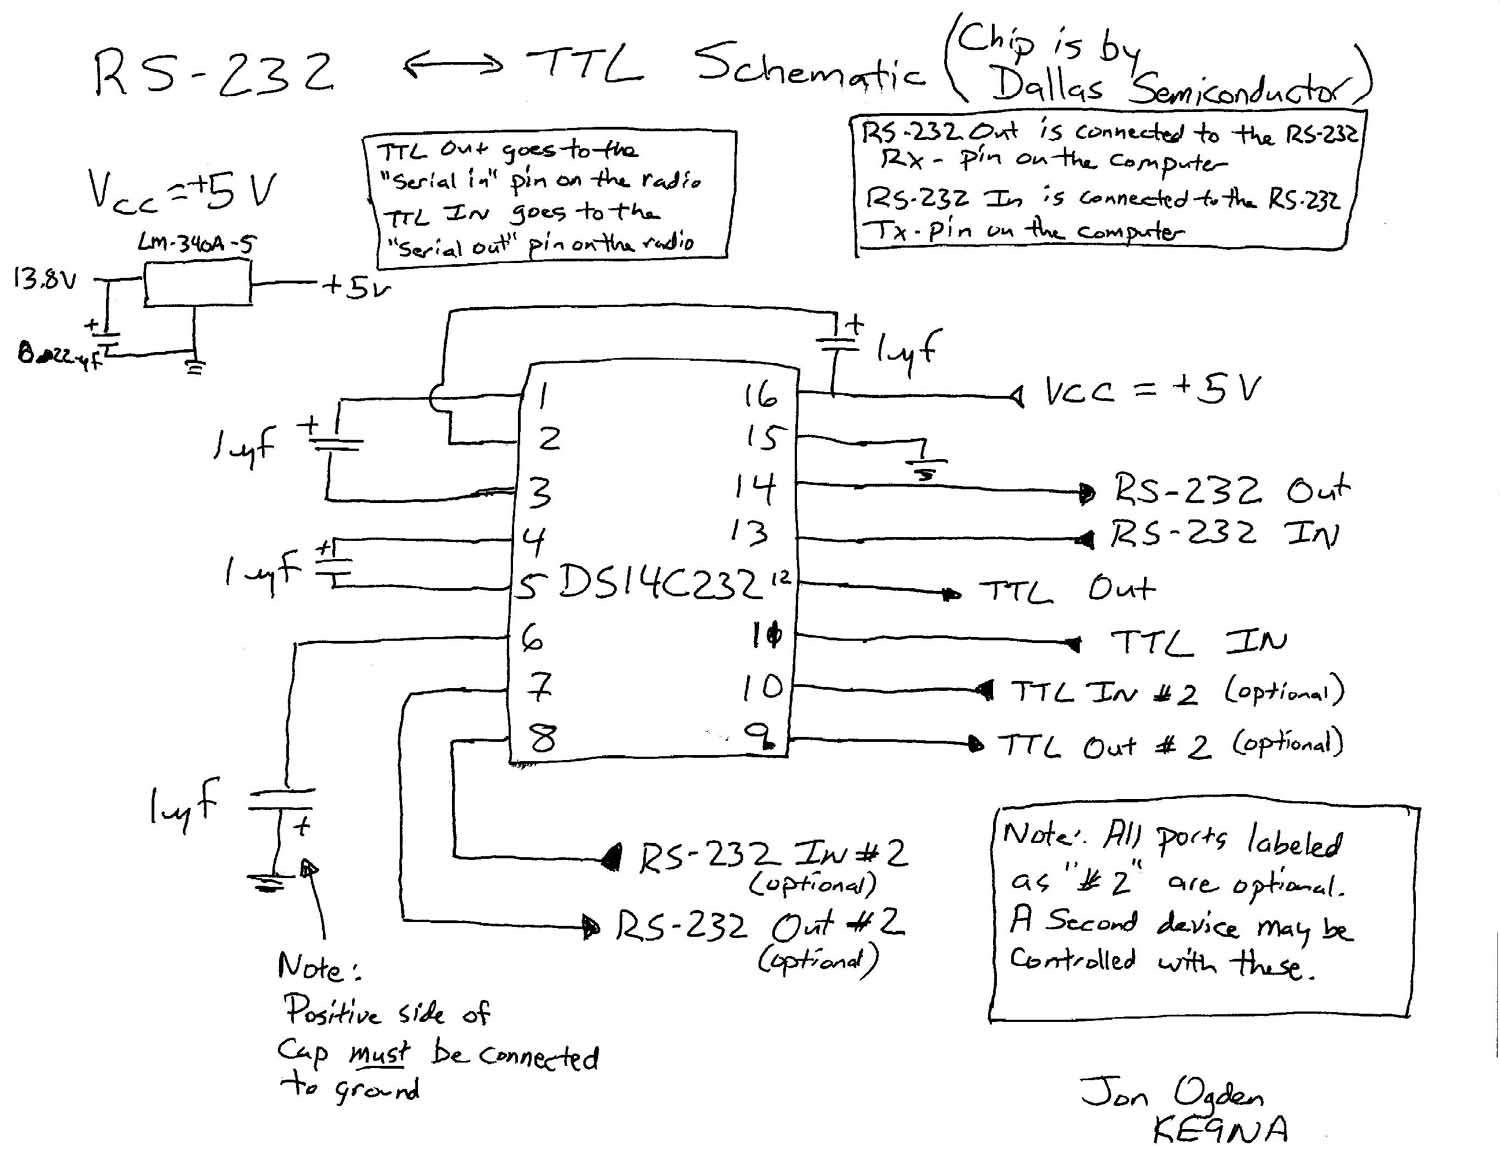 RS-232 ↔ TTL Schematic (Chip is by
Dallas Semiconductor)
Vcc = +5 V
LM-340A-5
13.8V
+5v
+
TTL Out goes to the
"Serial in" pin on the radio
TTL IN goes to the
"Serial out" pin on the radio
RS-232 Out is connected to the RS-232
Rx - pin on the computer
RS-232 In is connected to the RS-232
Tx - pin on the computer
+
1 µf
+
1 µf
+
1 µf
1 µf
+
1
2
3
4
5
6
7
8
DS14C232
16
15
14
13
12
11
10
9
VCC = +5 V
RS-232 Out
RS-232 IN
TTL Out
TTL IN
TTL IN #2 (optional)
TTL Out #2 (optional)
RS-232 IN #2
(optional)
RS-232 Out #2
(optional)
Note:
Positive side of
Cap must be connected
to ground
Note: All ports labeled
as "#2" are optional.
A Second device may be
Controlled with these.
Jon Ogden
KE9NA